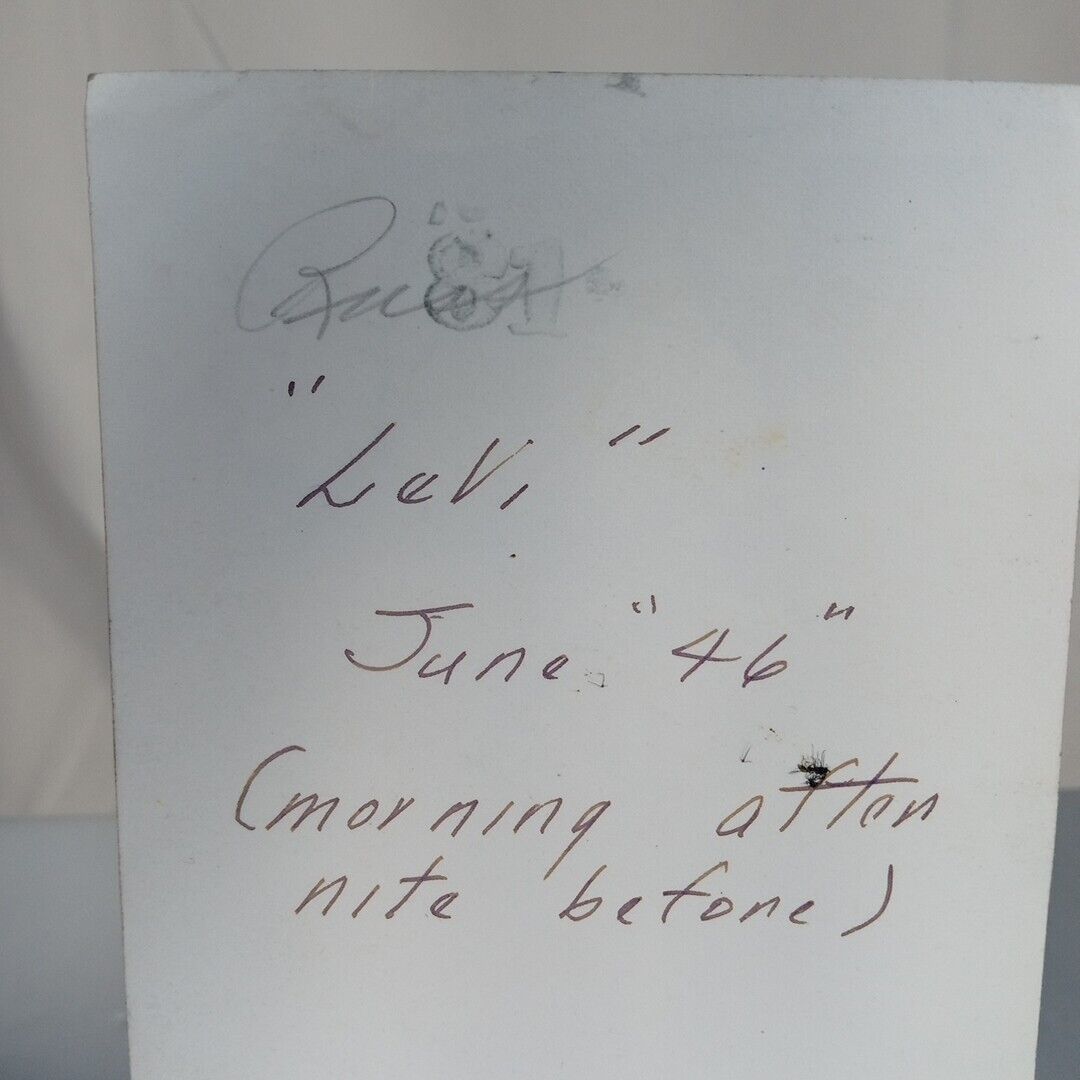 81
"LeVi"
June "46"
(morning after
nite before)